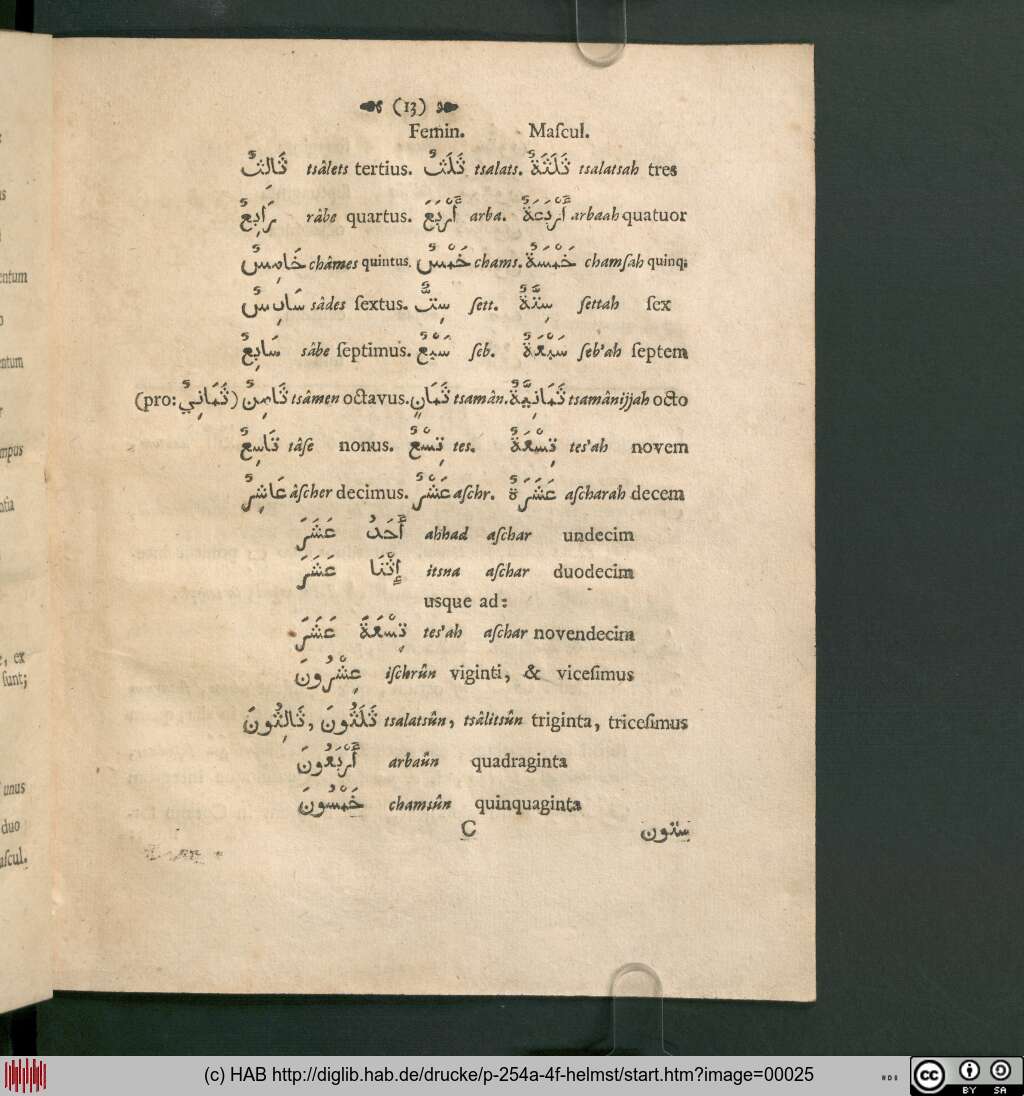 (13)
Femin. Maſcul.
ثَالِثٌ tsâlets tertius. ثَلَثٌ tsalats. ثَلَثَةٌ tsalatsah tres
رَابِعٌ râbe quartus. أَرْبَعَ arba. أَرْبَعَةٌ arbaah quatuor
خَامِسٌ châmes quintus. خَمْسٌ chams. خَمْسَةٌ chamſah quinq;
سَادِسٌ sâdes ſextus. سِتٌّ ſett. سِتَّةٌ ſettah ſex
سَابِعٌ sâbe ſeptimus. سَبْعٌ ſeb. سَبْعَةٌ ſeb'ah ſeptem
(pro: ثَمَانِيٌ) ثَامِنٌ tsâmen octavus. ثَمَانٍ tsamân. ثَمَانِيَّةٌ tsamânijjah octo
تَاسِعٌ tâſe nonus. تِسْعٌ tes. تِسْعَةٌ tes'ah novem
عَاشِرٌ âſcher decimus. عَشْرٌ aſchr. عَشَرَةٌ aſcharah decem
أَحَدُ عَشَرَ ahhad aſchar undecim
إِثْنَا عَشَرَ itsna aſchar duodecim
usque ad:
تِسْعَةَ عَشَرَ tes'ah aſchar novendecim
عِشْرُونَ iſchrûn viginti, & viceſimus
ثَلَثُونَ, ثَالِثُونَ tsalatsûn, tsâlitsûn triginta, triceſimus
أَرْبَعُونَ arbaûn quadraginta
خَمْسُونَ chamsûn quinquaginta
C ستون
entum
entum
mpus
e, ex
ſunt;
unus
duo
aſcul.
(c) HAB http://diglib.hab.de/drucke/p-254a-4f-helmst/start.htm?image=00025
cc BY SA